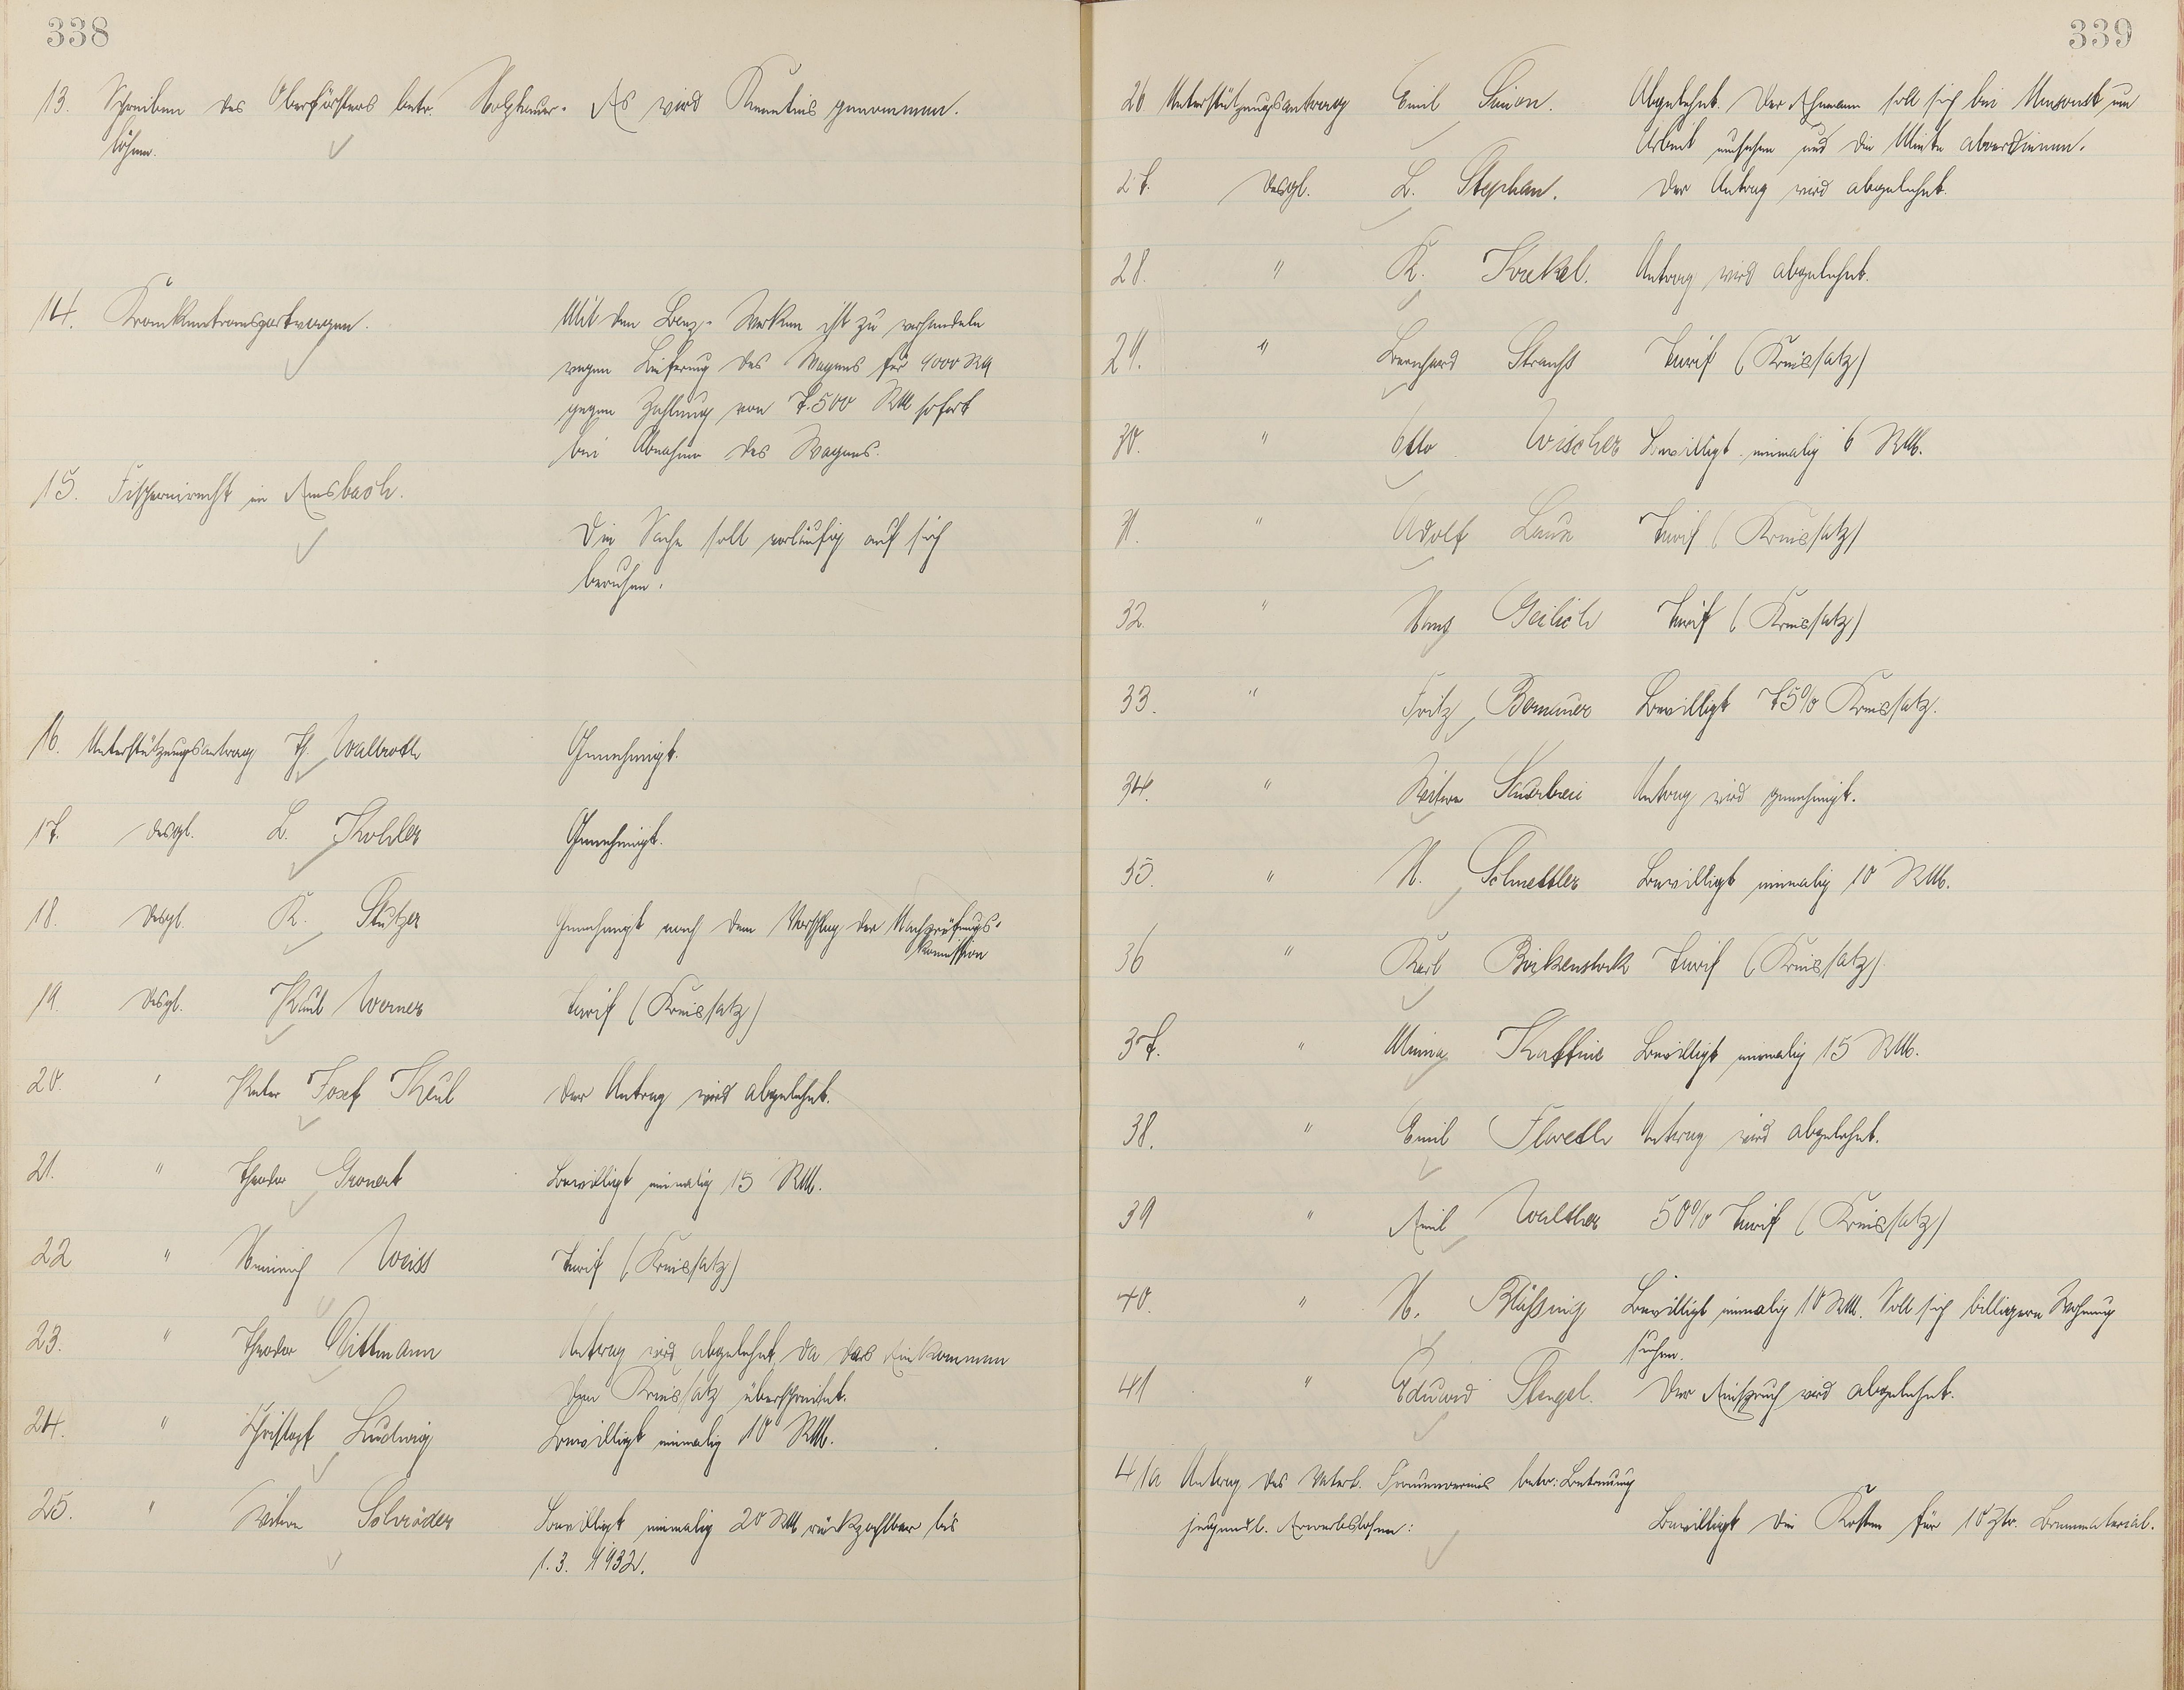 338
13. Schreiben des Oberförsters betr. Holzhauer- Es wird Kenntnis genommen.
löhne.
14. Krankentransportwagen.
Mit den Benz-Werken ist zu verhandeln
wegen Lieferung des Wagens für 9000 RM
gegen Zahlung von 7.500 RM sofort
bei Abnahme des Wagens.
15. Fischereirecht im Emsbach.
Die Sache soll vorläufig auf sich
beruhen.
16. Unterstützungsantrag Th. Walbroth Genehmigt.
17. desgl. L. Kohler Genehmigt.
18. desgl. K. Stutzer Genehmigt nach dem Vorschlag der Nachprüfungs-
kommission
19. desgl. Paul Werner Tarif (Kreissatz)
20. " Peter Josef Keul Der Antrag wird abgelehnt.
21. " Theodor Gronert Bewilligt einmalig 15 RM.
22 " Heinrich Weiss Tarif (Kreissatz)
23. " Theodor Wittmann Antrag wird abgelehnt, da das Einkommen
den Kreissatz überschreitet.
24. " Christoph Ludwig Bewilligt einmalig 10 RM.
25. " Witwe Schröder Bewilligt einmalig 20 RM rückzahlbar bis
1.3. 1932.
339
26 Unterstützungsantrag Emil Simon. Abgelehnt. Der Ehemann soll sich bei um
Arbeit umsehen und die Miete abverdienen.
27. desgl. L. Stephan. Der Antrag wird abgelehnt.
28. " K. Krekel. Antrag wird abgelehnt.
29. " Bernhard Strauss Tarif (Kreissatz)
30. " Otto Wischer Bewilligt einmalig 6 RM.
31. " Adolf Laux Tarif (Kreissatz)
32. " Hans Geilich Tarif (Kreissatz)
33. " Fritz Bernauer Bewilligt 75% Kreissatz.
34. " Witwe Sauerbrei Antrag wird genehmigt.
35. " H. Schmettler Bewilligt einmalig 10 RM.
36 " Karl Birkenstock Tarif (Kreissatz)
37. " Minna Kaffine Bewilligt einmalig 15 RM.
38. " Emil Floreth Antrag wird abgelehnt.
39 " Emil Walther 50% Tarif (Kreissatz)
40. " H. Blässing Bewilligt einmalig 10 RM. Soll sich billigere Wohnung
suchen.
41 " Eduard Stengel. Der Einspruch wird abgelehnt.
41a Antrag des Vaterl. Frauenvereins betr: Betreuung
jugendl. Erwerbslosen:
Bewilligt die Kosten für 10 Ztr. Brennmaterial.